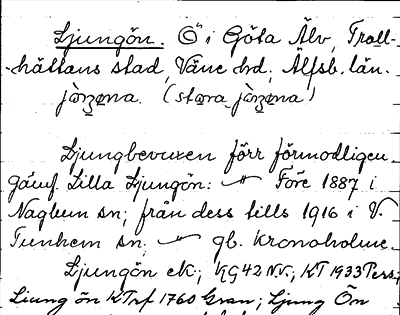 Ljungön. Ö i Göta Älv, Troll-
hättans stad, Väne hd, Älfsb. län.
(stora
Ljungbevuxen förr förmodligen.
Jämf. Lilla Ljungön: Före 1887 i
Nagbum sn; från dess tills 1916 i V.
Tunhem sn. gb. Kronoholme.
Ljungön ek; KG 42 NV.; KT 1933 Pers.;
Liung ön KTrf 1760 Gran; Ljung Ön